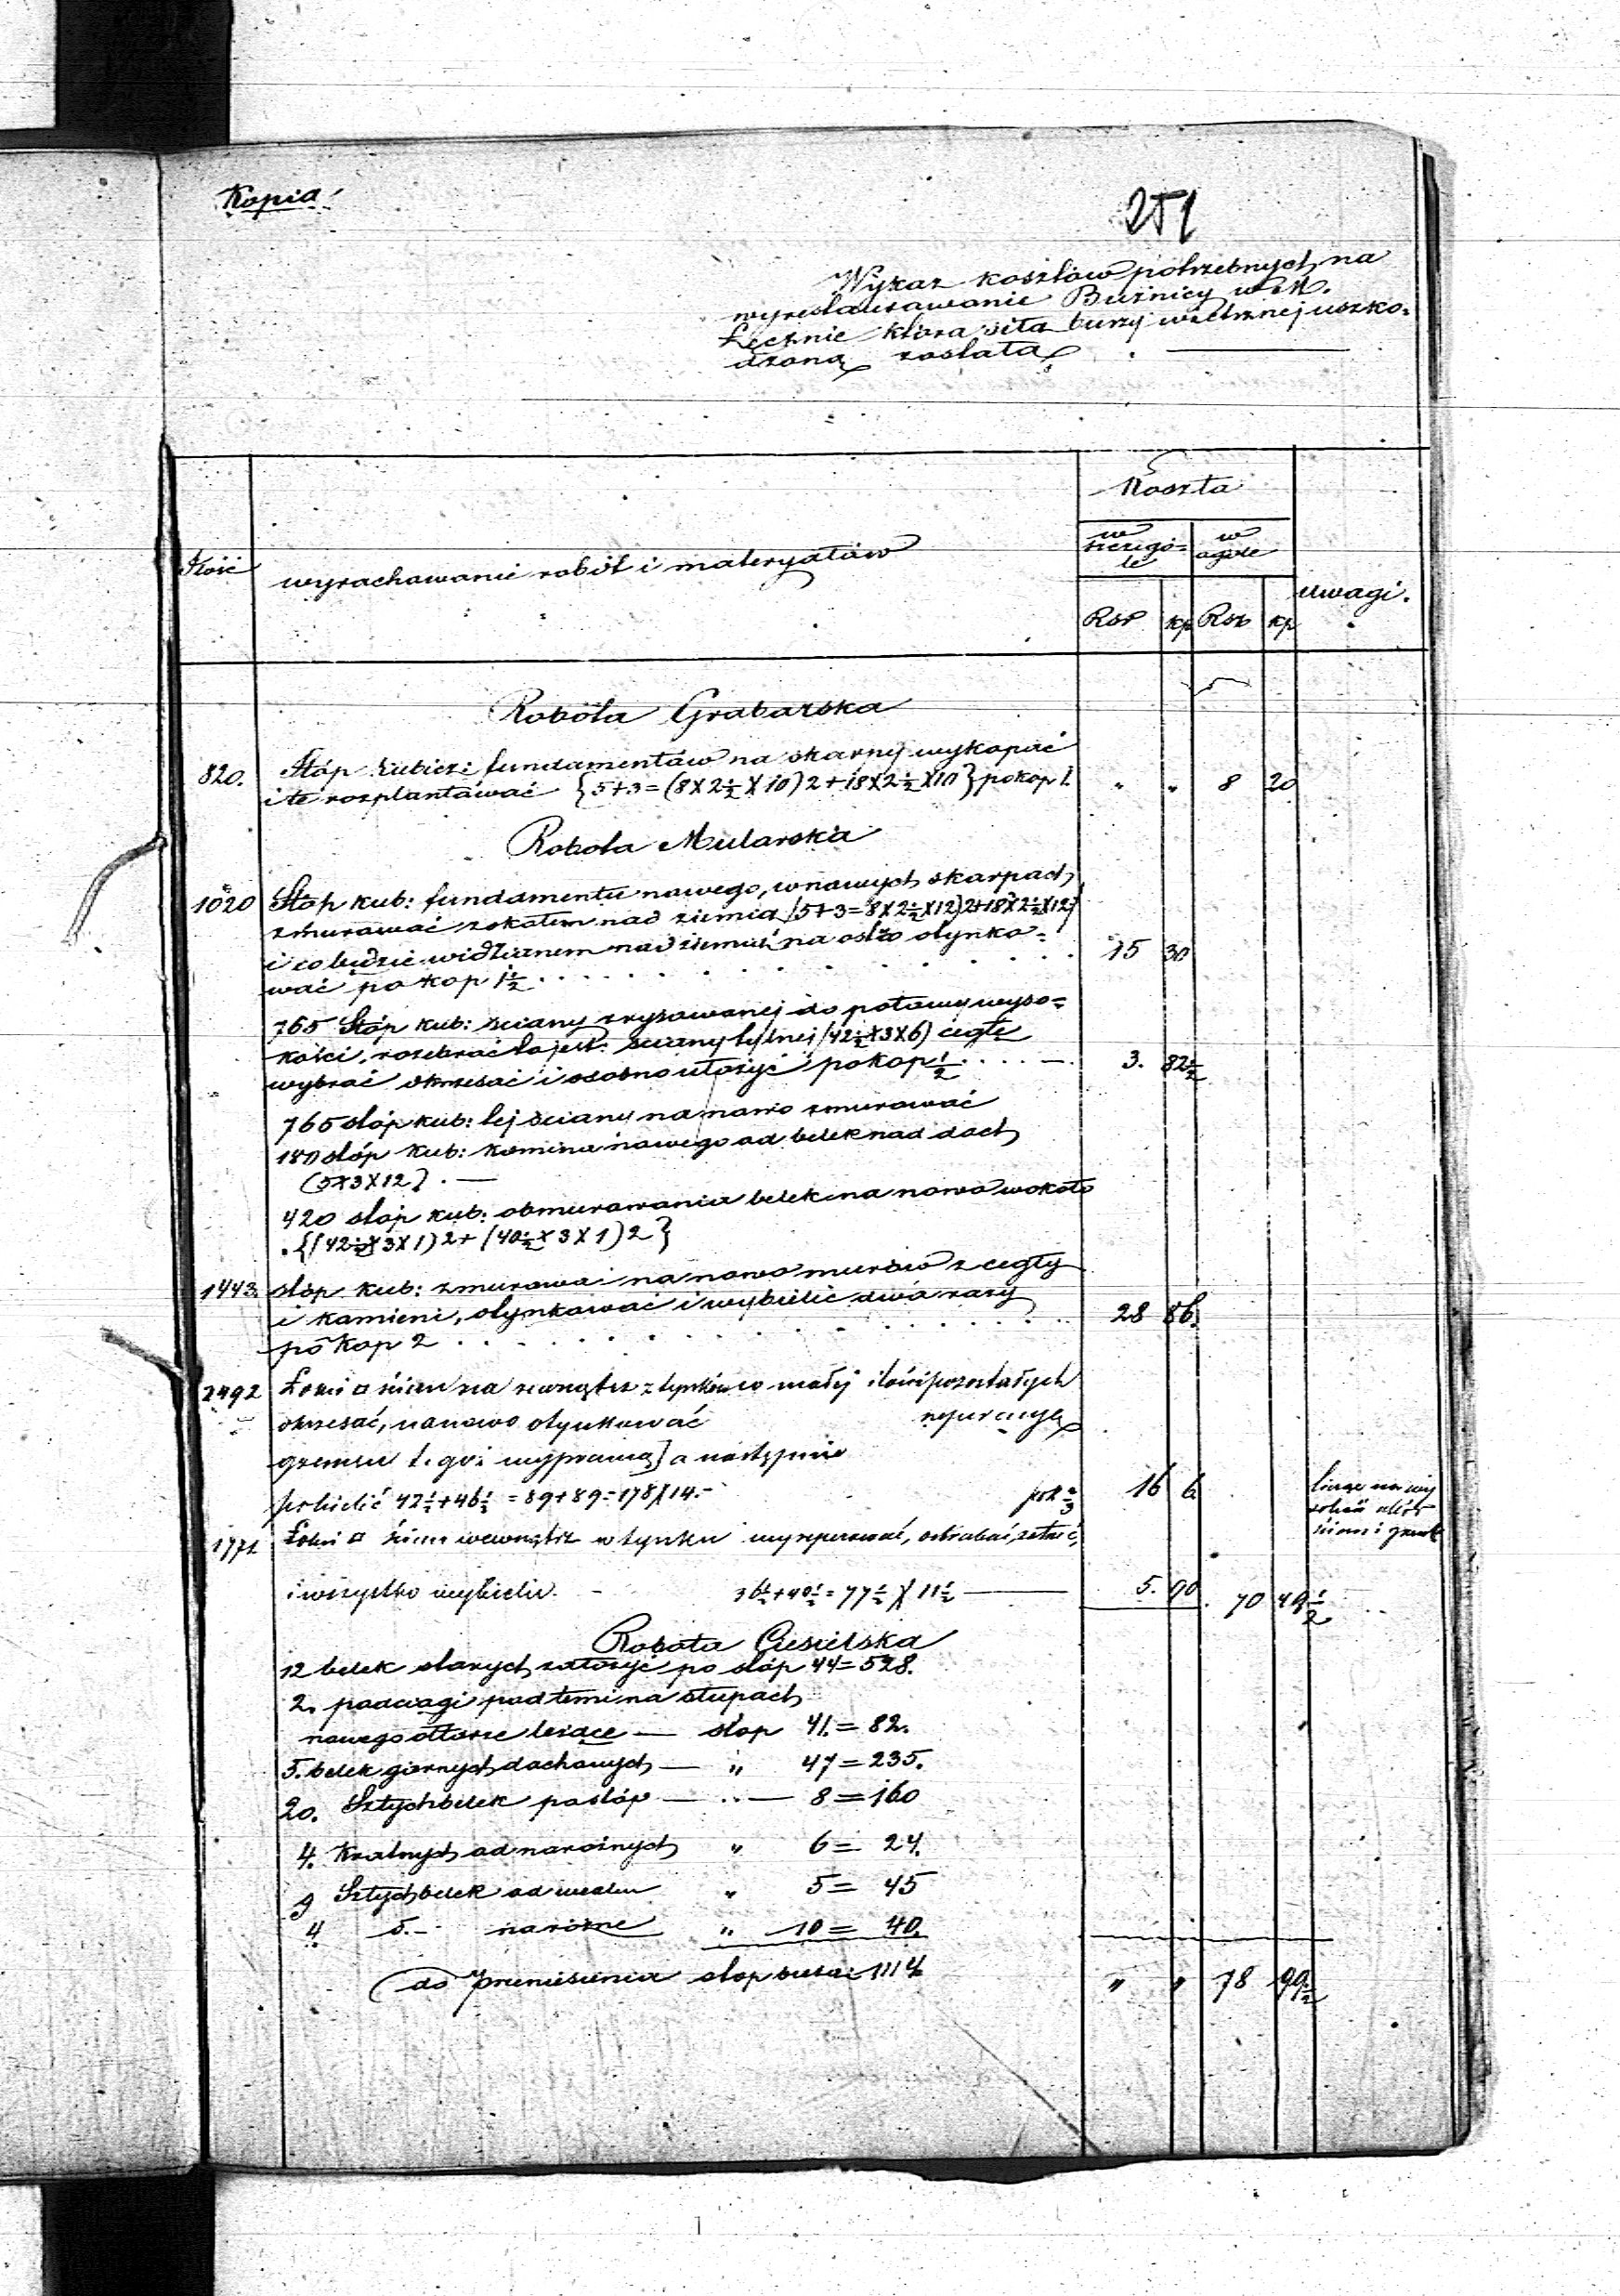 Kopia
251
Wykaz kosztów potrzebnych na
wyrestaurowanie Bużnicy w M.
Łęcznie która siłą burzy wietrznej uszko=
dzoną została
Ilość
wyrachowanie robót i materyałów
Koszta
w szczegó=
le
w
ogóle
uwagi.
Rsr kp Rsr kp
Robota Grabarska
820. Stóp kubicz: fundamentów na skarpy wykopać
i te rozplantować {5+3=(8X2½X10)2+18X2½X10} po kop 1. " " 8 20
Robota Mularska
1020 Stóp kub: fundamentu nowego, w nowych skarpach
zmurować z okołem nad ziemią (5+3=8X2½X12)2+18X2½X12)
i co będzie widzianem nad ziemią na ostro otynko=
wać po kop 1½ 15 30
765 Stóp kub: ściany zrysowanej do połowy wyso=
kości, rozebrać to jest: ściany tylnej (42½X3X6) cegłę
wybrać okrzesać i osobno ułożyć po kop ½ 3. 82½
765 stóp kub: tej ściany na nowo zmurować
180 stóp kub: komina nowego od belek nad dach
(5X3X12)
420 stóp kub: obmurowania belek na nowo wokoło
{(42½X3X1)2+(40½X3X1)2}
1443. stóp kub: zmurować na nowo murów z cegły
i kamieni, otynkować i wybielić dwa razy
po kop 2 28 86.
2492 Łokci □ ścian na zewnątrz z tynków w małej ilości pozostałych
okrzesać, na nowo otynkować reperacyą
gzemsu i wyprawą] a następnie
pobielić 42½+46½=89+89=178X14. po k ⅔ 16 6
1771 Łokci □ ścian wewnątrz w tynku wyreperować, obrąbać, zatrzeć,
i wszystko wybielić. 36½+40½=77½X11½ 5. 90 70 49½
Robota Ciesielska
12 belek starych założyć po stóp 44=528.
2. podciągi pod temi na słupach
nowego ołtarze leżące stóp 41.=82.
5. belek górnych dachowych " 47=235.
20. Sztychbelek po stóp 8=160
4. Kratnych od narożnych " 6=24.
9 Sztychbelek od " 5=45
4 d. narożne " 10=40.
do przeniesienia stóp 1114 " " 78 99½